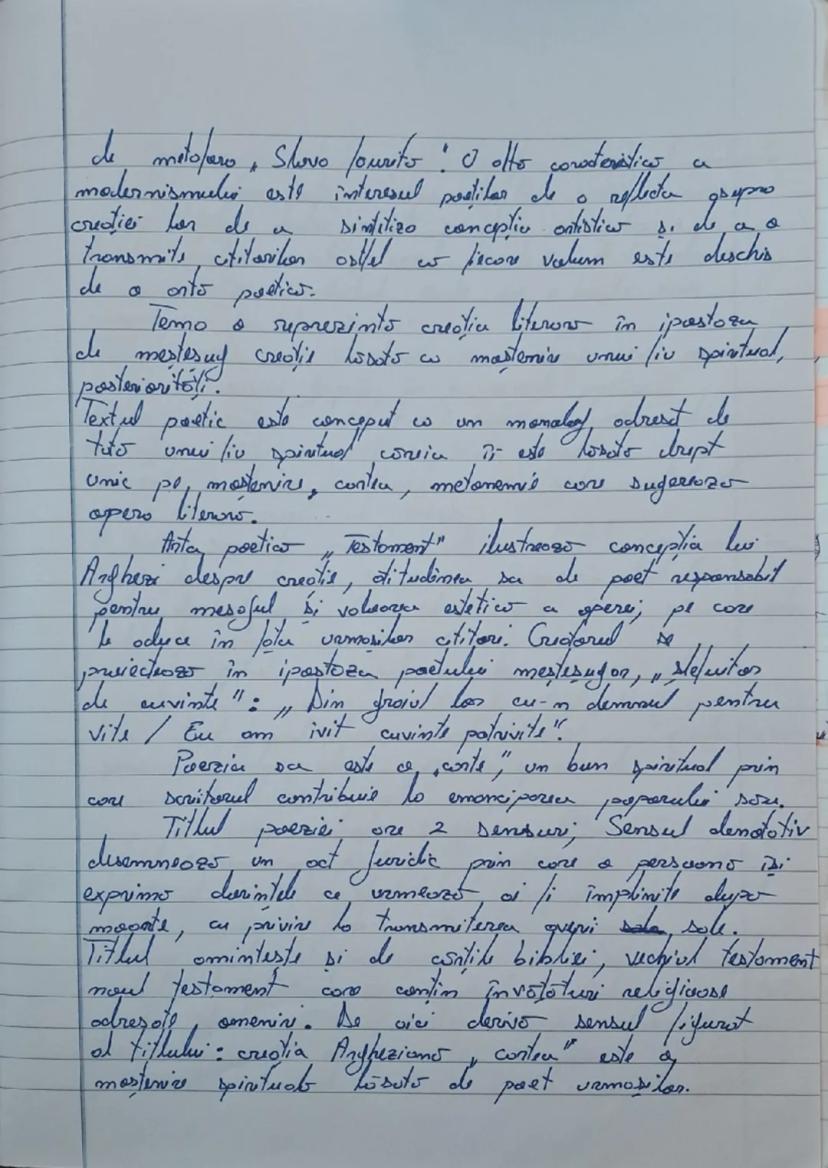 de metafora „Slova faurita". O alta caracteristica a
modernismului este interesul poetilor de a reflecta asupra
creației lor de a sintitiza conceptia artistica și de a o
transmite cititorilor astfel ca fiecare volum este deschis
de o arta poetica.
Tema o reprezinta creația literara în ipostaza
de meșteșug creație lasata ca moștenire unui fiu spiritual,
posteriorității.
Textul poetic este conceput ca un monolog adresat de
tata unui fiu spiritual caruia îi este lasata drept
unic pe, mostenire, cartea, metonemie care sugereaza
opera literara.
Arta poetica „Testament" ilustreaza conceptia lui
Arghezi despre creatie, atitudinea sa de poet responsabil
pentru mesajul și valoarea estetica a operei, pe care
le aduce în fața urmasilor cititori. Creatorul se
proiecteaza în ipostaza poetului meșteșugar, „slefuitor
de cuvinte": „Din graiul lor cu-n demnul pentru
vite / Eu am ivit cuvinte potrivite".
Poezia sa este o „carte", un bun spiritual prin
care scriitorul contribuie la emanciparea poporului sau.
Titlul poeziei are 2 sensuri; Sensul denotativ
desemneaza un act juridic prin care o persoana iși
exprima dorintele ce urmeaza a fi împlinite dupa
moarte, cu privire la transmiterea averi sale.
Titlul aminteste și de cartile bibliei, vechiul testament
noul testament care conțin învataturi religioase
adresate omenirii. De aici deriva sensul figurat
al titlului: creatia Argheziana „cartea" este o
mostenire spirituala lasata de poet urmașilor.